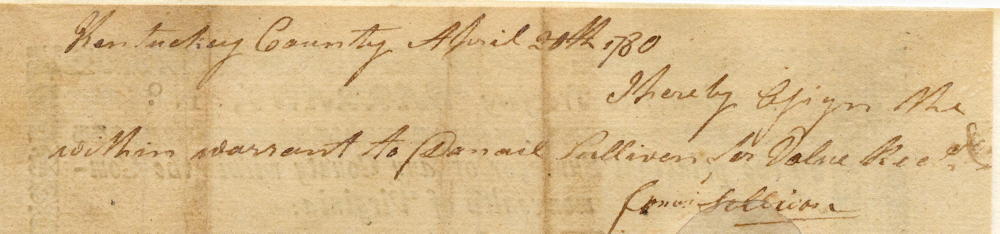 Kentuckey County April 20th 1780
I hereby Assign the
within warrant to Danail Sulliven for Value Recd
Sullivan